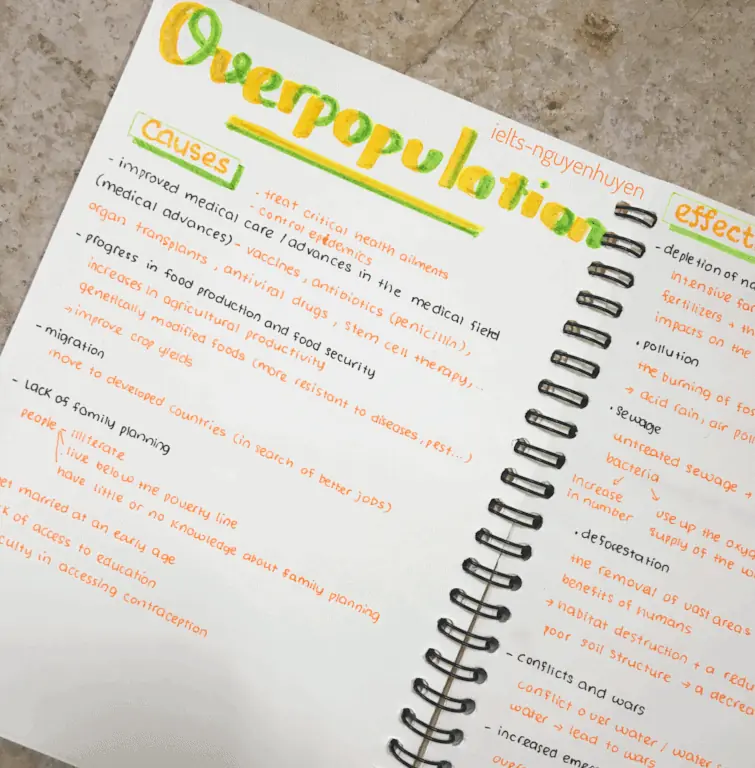 Overpopulation
ielts-nguyenhuyen
Causes
- improved medical care / advances in the medical field
- treat critical health ailments
- control epidemics
(medical advances) - vaccines, antibiotics (penicillin),
organ transplants, antiviral drugs, stem cell therapy,...
- progress in food production and food security
increases in agricultural productivity
genetically modified foods (more resistant to diseases, pest...)
→ improve crop yleids
- migration
move to developed countries (in search of better jobs)
- Lack of family planning
people illiterate
live below the poverty line
have little or no knowledge about family planning
married at an early age
of access to education
in accessing contraception
effect
- depletion of
intensive
fertilizers +
impacts on the
• pollution
the burning of
→ acid rain, air
• sewage
untreated sewage
bacteria
increase
in number
use up the
supply of the
• deforestation
the removal of vast areas
benefits of humans
→ habitat destruction + a
poor soil structure → a
- conflicts and wars
conflict over water / water
water → lead to wars
- increased